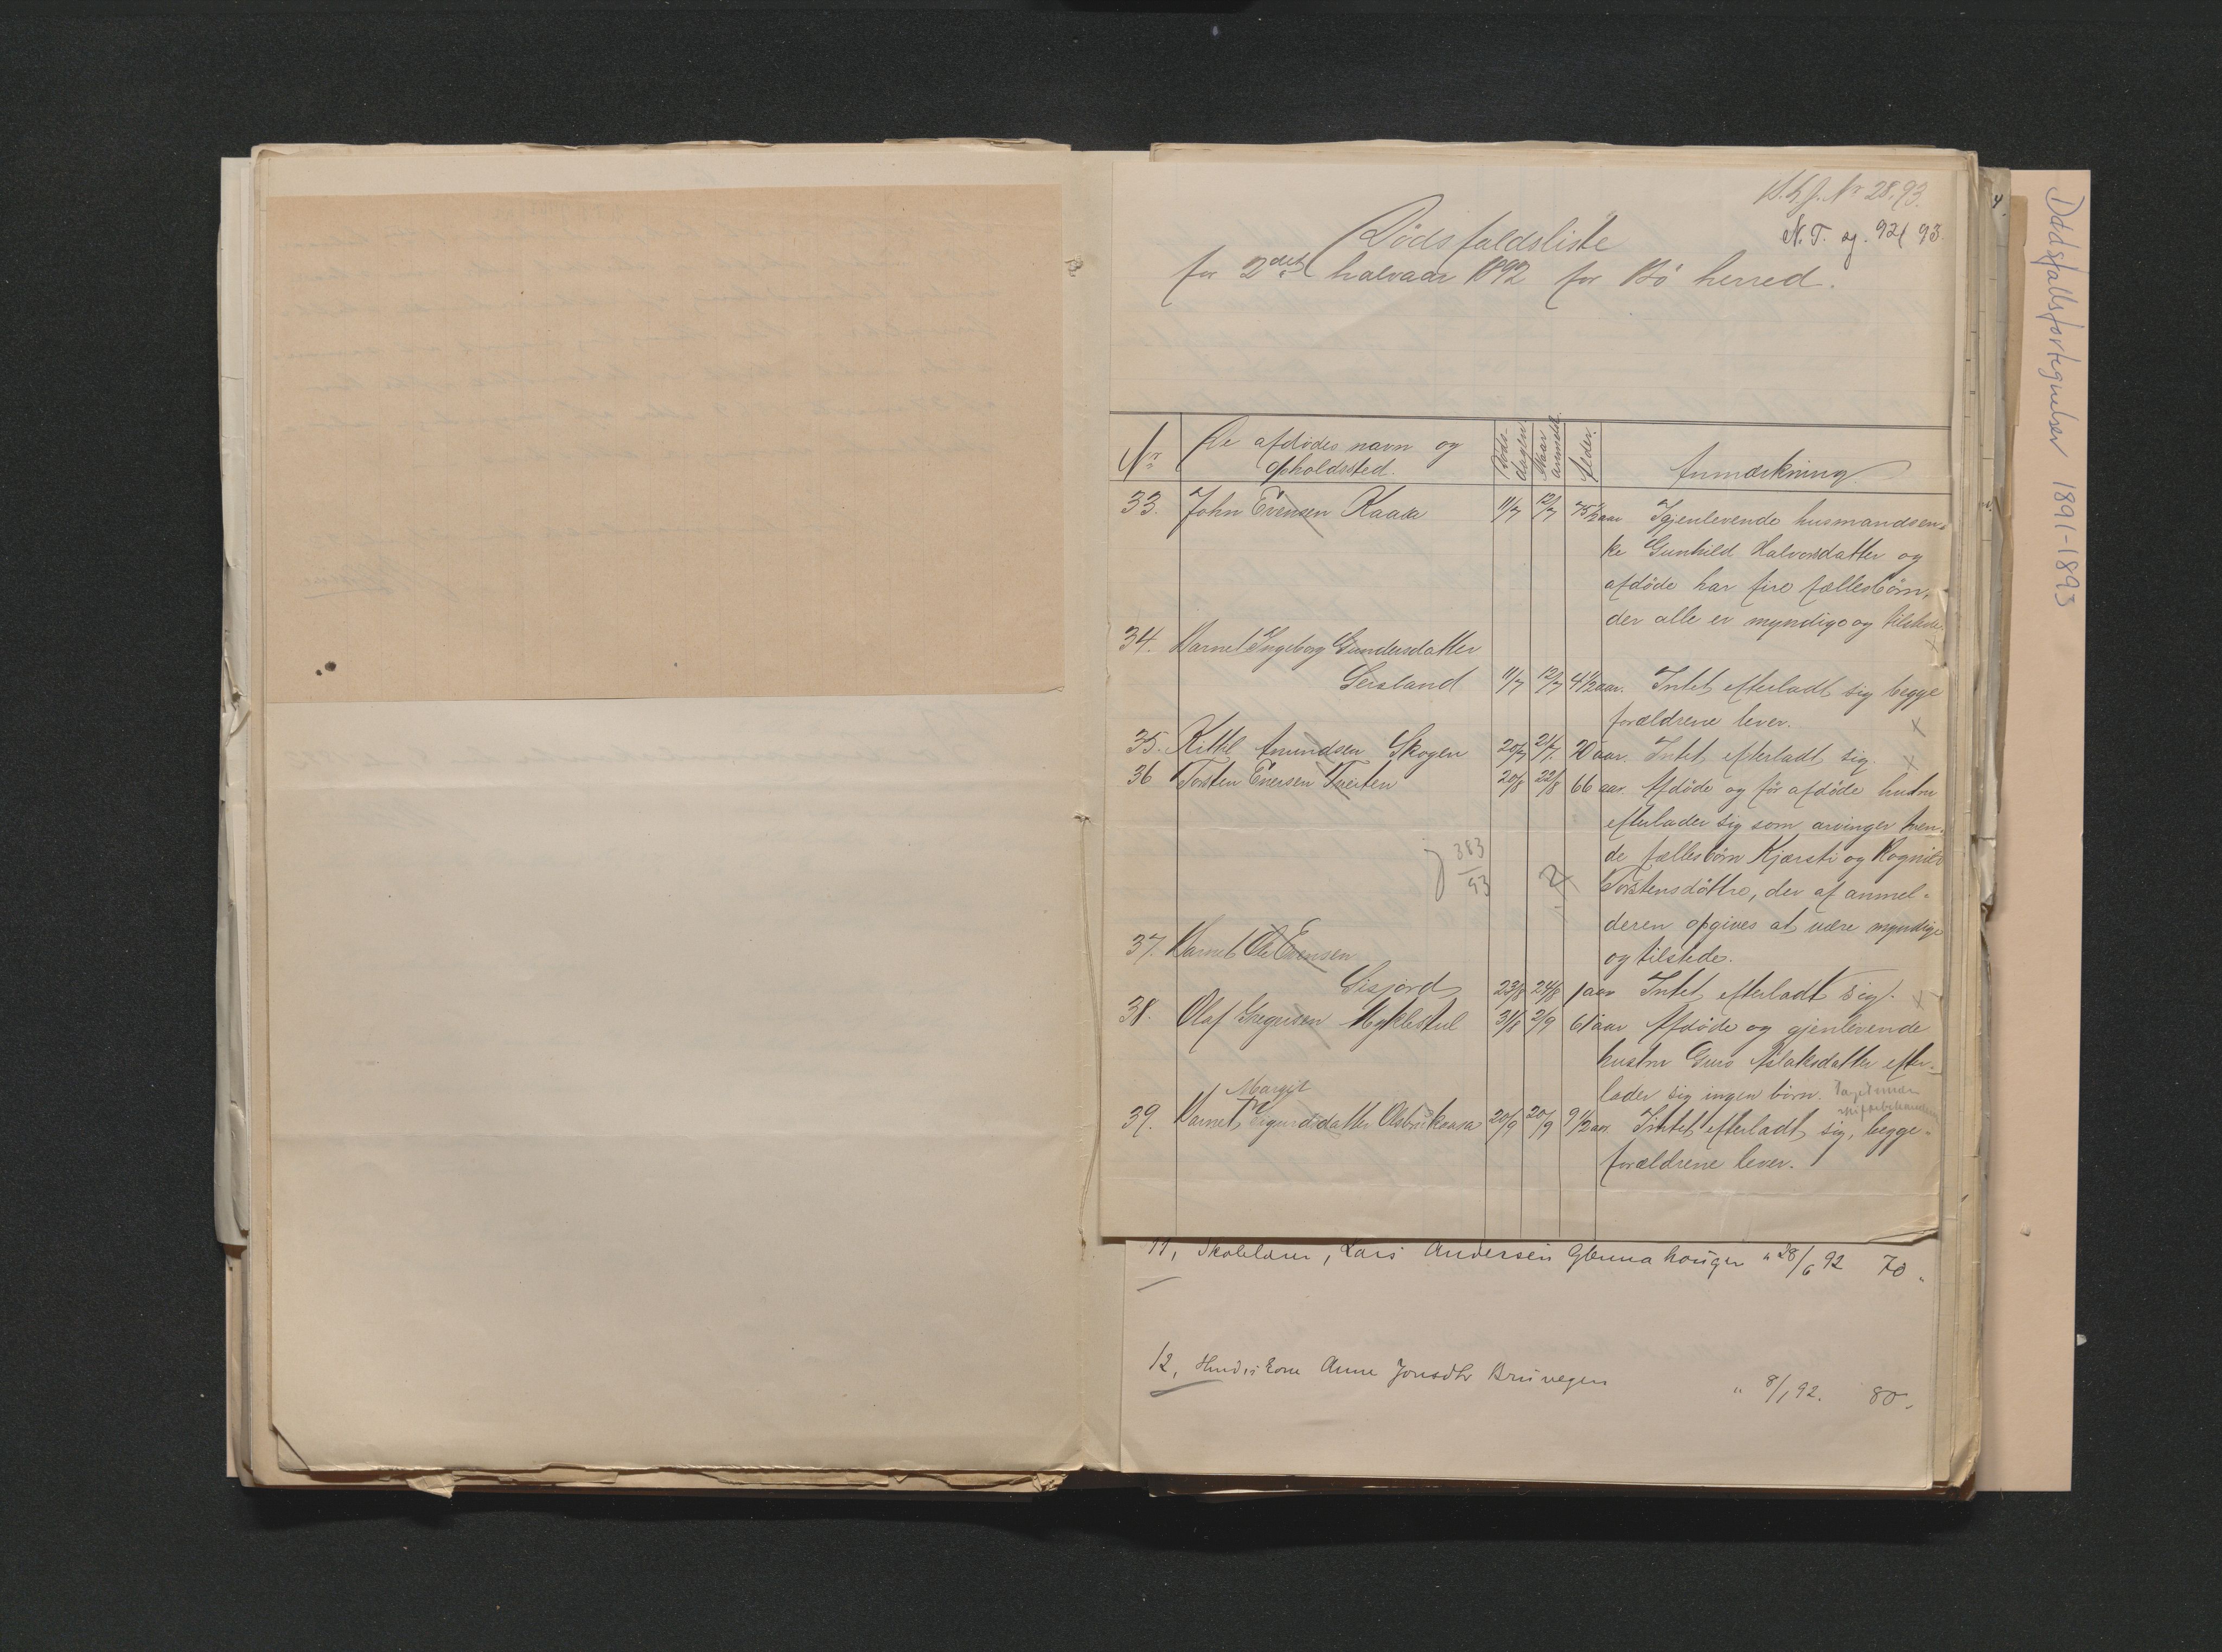 N. T. sg. 92/93
Dødsfaldsliste
for 2det halvaar 1892 for Bö herred.
Nr
De afdödes navn og opholdssted.
Döds-dagen.
Naar anmeldt.
Alder.
Anmærkning
33. John Evensen Kaasa 11/7 12/7 75 1/2 aar Igjenlevende husmandsen-
ke Gunhild Halvorsdatter og
afdöde har fire fællesbörn,
der alle er myndige og tilstede.
34. Barnet Ingeborg Gundersdatter
11/7 12/7 4 1/2 aar. Intet efterladt sig begge
forældrene lever.
35. Kittil Amundsen Skogen 20/7 21/7 20 aar. Intet efterladt sig.
36 Torsten Evensen Tveiten 20/8 22/8 66 aar. Afdöde og för afdöde hustru
efterlader sig som arvinger tven-
de fællesbörn Kjærsti og Rognild
j 383/93
Torstensdöttre, der af anmel-
deren opgives at være myndige
og tilstede.
37. Barnet Ole Evensen
Sisjord 23/8 24/8 1 aar Intet efterladt sig.
38. Olaf Gregusen Myklestul 31/8 2/9 61 aar Afdöde og gjenlevende
hustru Guro Aslaksdatter efter-
lader sig ingen börn.
Margit
39. Barnet Sigurdsdatter 20/9 20/9 9 1/2 aar Intet efterladt sig, begge
forældrene lever.
11, Skolelærer, Lars Andersen Glenna hougen " 28/6 92 70 "
12, Anne Jonsdtr Bruvegen " 8/1 92. 80 "
Dødsfallsfortegnelser 1891-1893